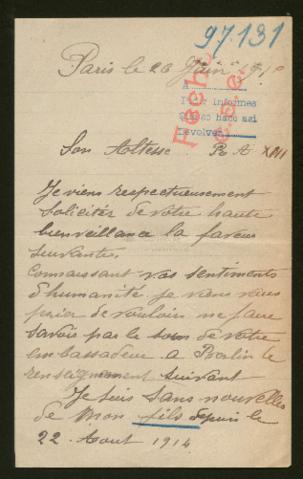 97.131
Paris le 26 Juin 191
A
Pour informes
Devolver
Son Altesse R A XIII
Je viens respectueusement
solicitér de votre haute
bienveillance la faveur
suivante,
Connaissant vos sentiments
d'humanité je viens vous
prier de vouloir me faire
savoir par le soin de votre
embassadeur a Berlin le
renseignement suivant
Je suis sans nouvelles
de mon fils depuis le
22 Aout 1914